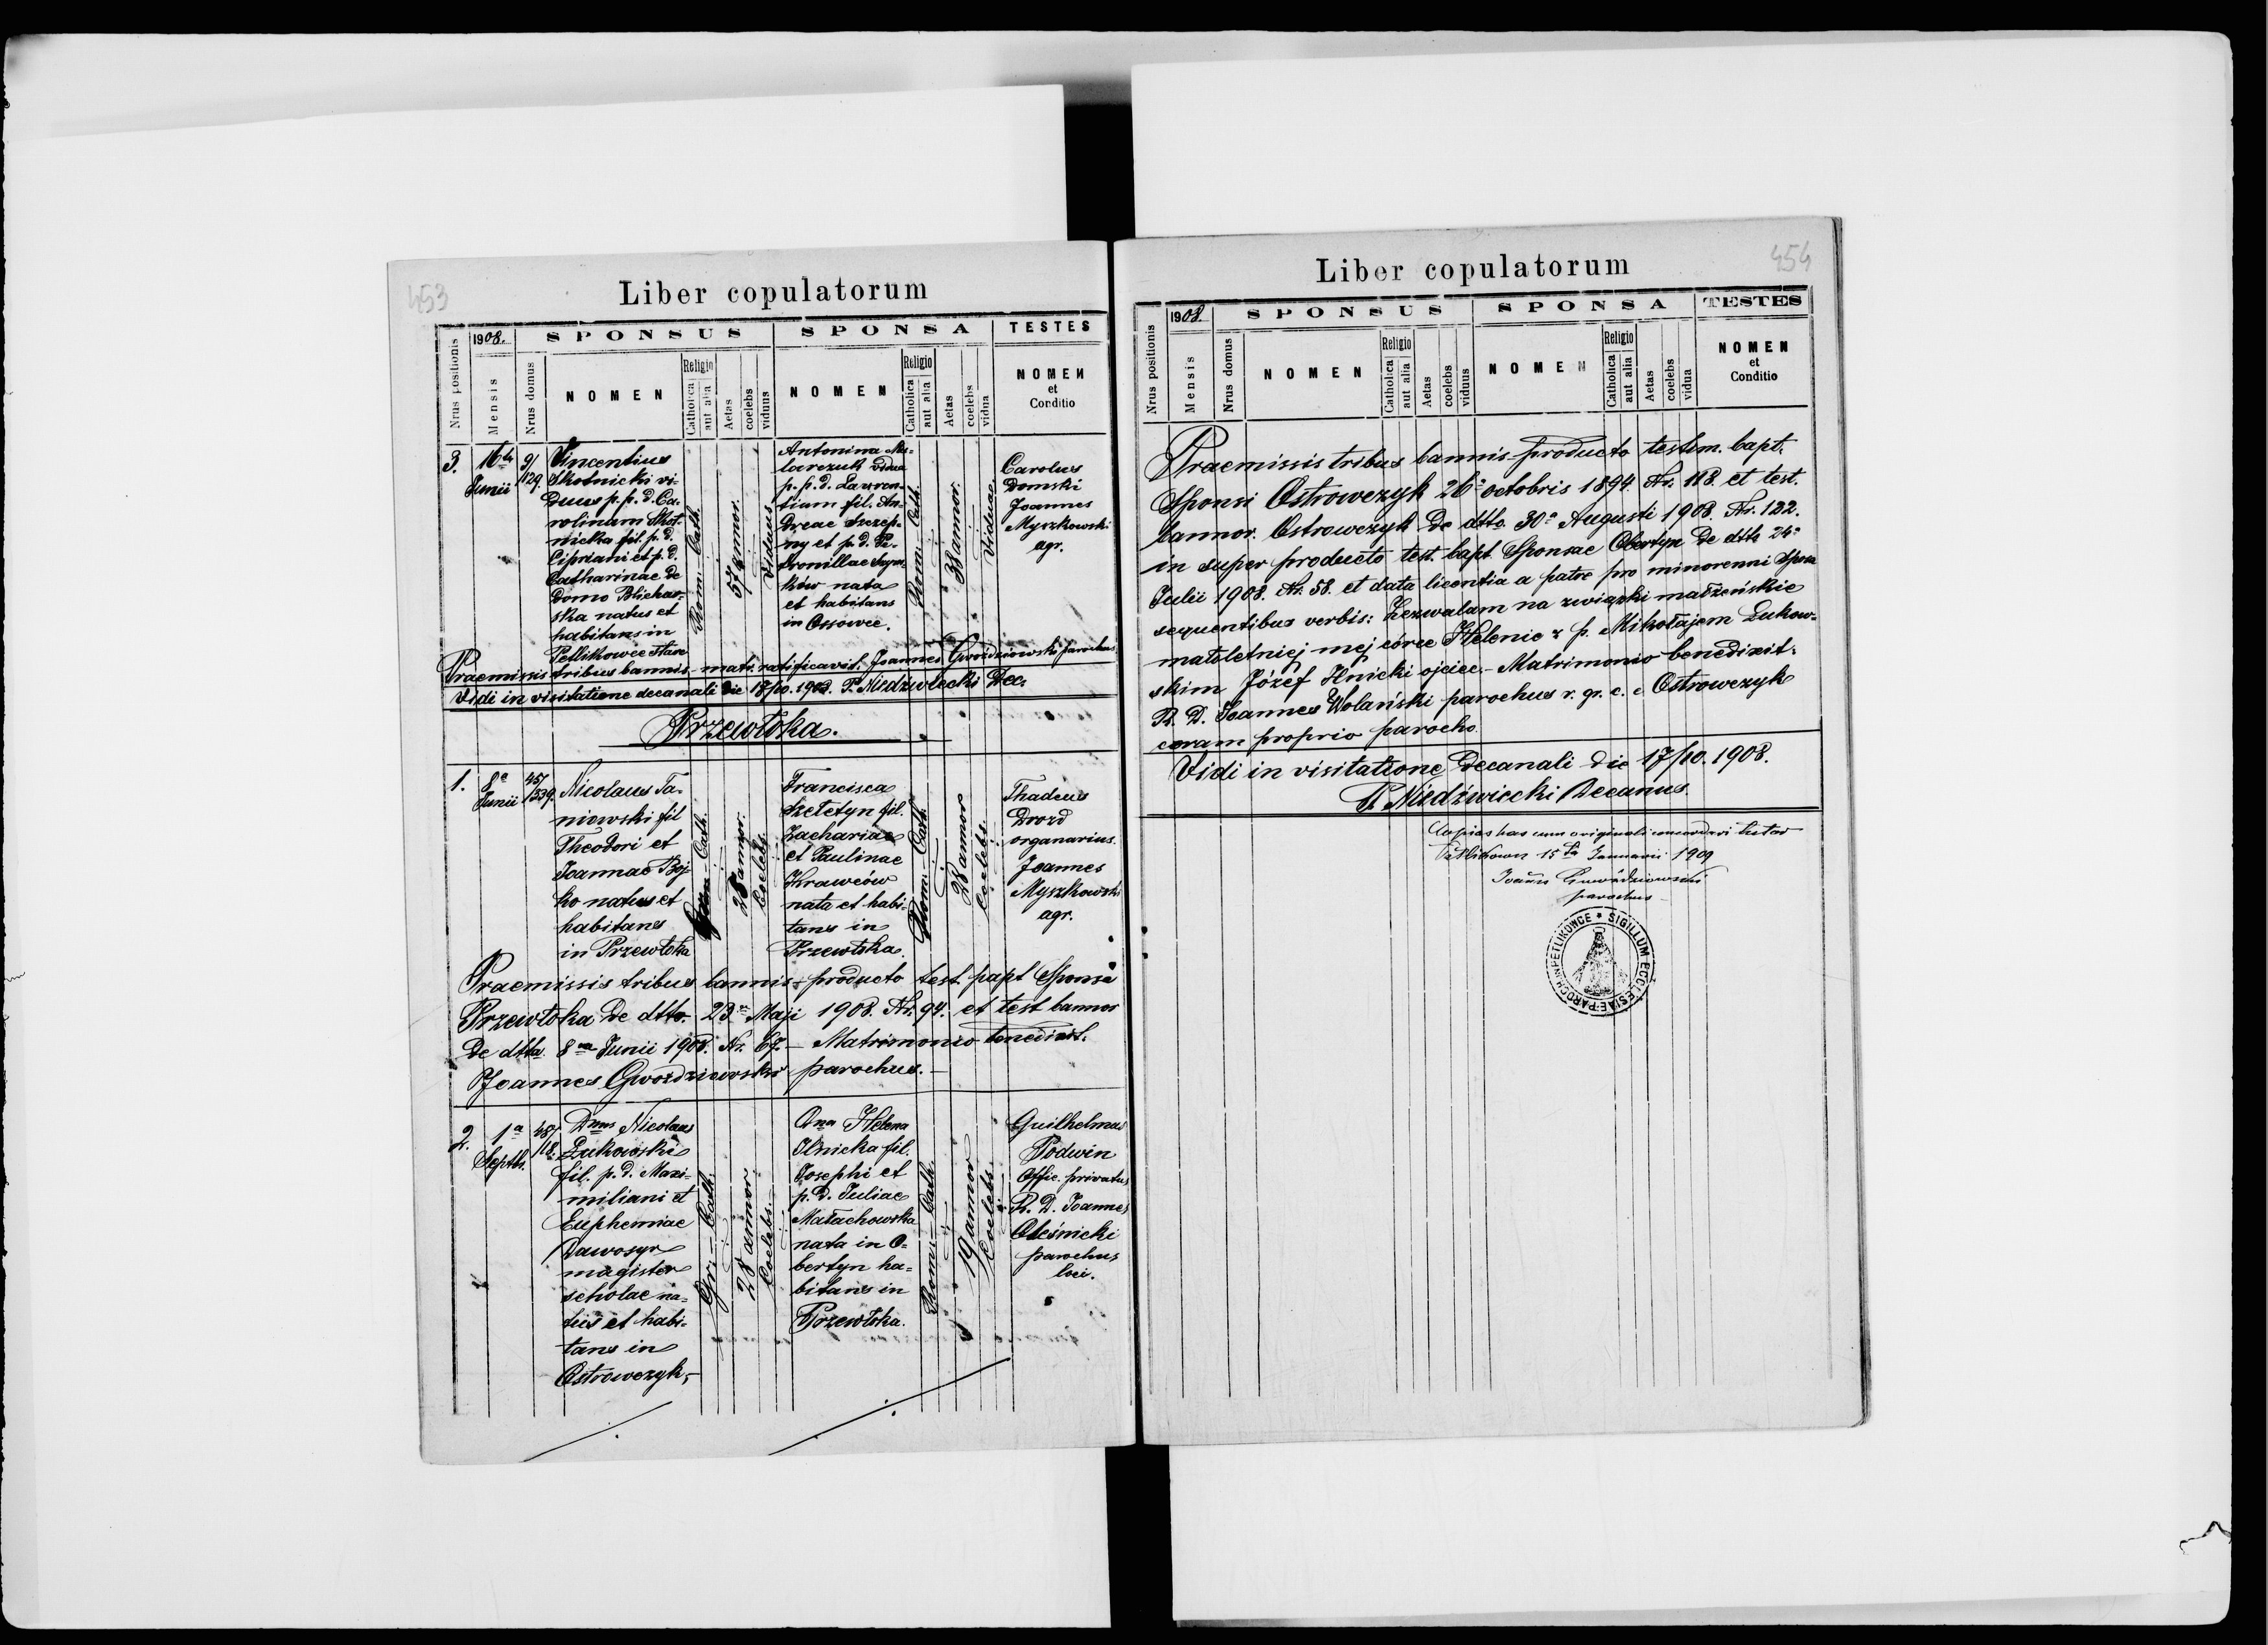 453
Liber copulatorum
1908.
SPONSUS
SPONSA
TESTES
Nrus positionis
Mensis
Nrus domus
NOMEN
Religio
Catholica
aut alia
Aetas
coelebs
viduus
NOMEN
Religio
Catholica
aut alia
Aetas
coelebs
vidua
NOMEN
et
Conditio
3.
16ta
Junii
9/
129.
Vincentius
Skotnicki vi-
duus p. p. d. Ca-
rolinam Skot-
nicka fil. p. d.
Cipriani et p. d.
Catharinae de
domo Blichar-
ska natus et
habitans in
Petlikowce stare
Rom. Cath.
57 annor.
Viduus
Antonina
larczuk vidua
p. p. d. Lauren-
tium fil. An-
dreae Szczep-
ny et p. d. Pe-
tronillae
ków nata
et habitans
in Ossowce.
Rom. Cath.
38 annor.
Vidua
Carolus
Domski
Joannes
Myszkowski
agr.
Praemissis tribus bannis - matr. ratificavit. Joannes Gwoździowski parochus.
Vidi in visitatione decanali die 18/10. 1908. P. Niedźwiecki Dec.
Przewłoka.
1.
8a
Junii
45/
339.
Nicolaus Ta-
niowski fil
Theodori et
Joannae Boj-
ko natus et
habitans
in Przewłoka
Cath.
28 annor.
Coelebs.
Francisca
Szeletyn fil.
Zachariae
et Paulinae
Krawców
nata et habi-
tans in
Przewłoka.
Rom. Cath.
23 annor
Coelebs.
Thadeus
Drozd
organarius.
Joannes
Myszkowski
agr.
Praemissis tribus bannis - producto test. papt Sponsi
Przewłoka de dtto. 23a Maji 1908. Nr. 94. et test bannor
de dtta. 8va Junii 1908. Nr. 67. - Matrimonio benedixit.
Joannes Gwoździowski parochus. -
2.
1a
Septb.
48/
18.
Dnus Nicolaus
Łukowski
fil. p. d. Maxi-
miliani et
Euphemiae
Dawosyr
magister
scholae na-
tus et habi-
tans in
Ostrowczyk,
Gr. - Cath.
28 annor.
Coelebs. -
Dna Helena
Ilnicka fil.
Josephi et
p. d. Juliae
Małachowska
nata in O-
bertyn ha-
bitans in
Przewłoka.
Rom. - Cath.
19 annor
Coelebs.
Guilhelmus
Podwin
Offic. privatus
R. D. Joannes
Oleśnicki
parochus
loci.
454
Liber copulatorum
1908.
SPONSUS
SPONSA
TESTES
Nrus positionis
Mensis
Nrus domus
NOMEN
Religio
Catholica
aut alia
Aetas
coelebs
viduus
NOMEN
Religio
Catholica
aut alia
Aetas
coelebs
vidua
NOMEN
et
Conditio
Praemissis tribus bannis - producto testim. bapt.
Sponsi Ostrowczyk 26a octobris 1894. Nr. 118. et test.
bannor. Ostrowczyk de dtto. 30a Augusti 1908. Nr. 122.
in super producto test. bapt. Sponsae Obertyn de dtto 24a
Julii 1908. Nr. 58. et data licentia a patre pro minorenni Sponsa
sequentibus verbis: Zezwalam na związki małżeńskie
małoletniej mej córce Helenie z p. Mikołajem Łukow-
skim Józef Ilnicki ojciec. - Matrimonio benedixit.
R. D. Joannes Wolański parochus r. gr. c. e Ostrowczyk
coram proprio parocho.
Vidi in visitatione decanali die 17/10. 1908.
P. Niedźwiecki Decanus.
Copias has cum originali concordari testor
Petlikowce 15ta Januarii 1909
Joann Gwoździowski
parochus
SIGILLUM ECCLESIAE PAROCH. IN PETLIKOWCE